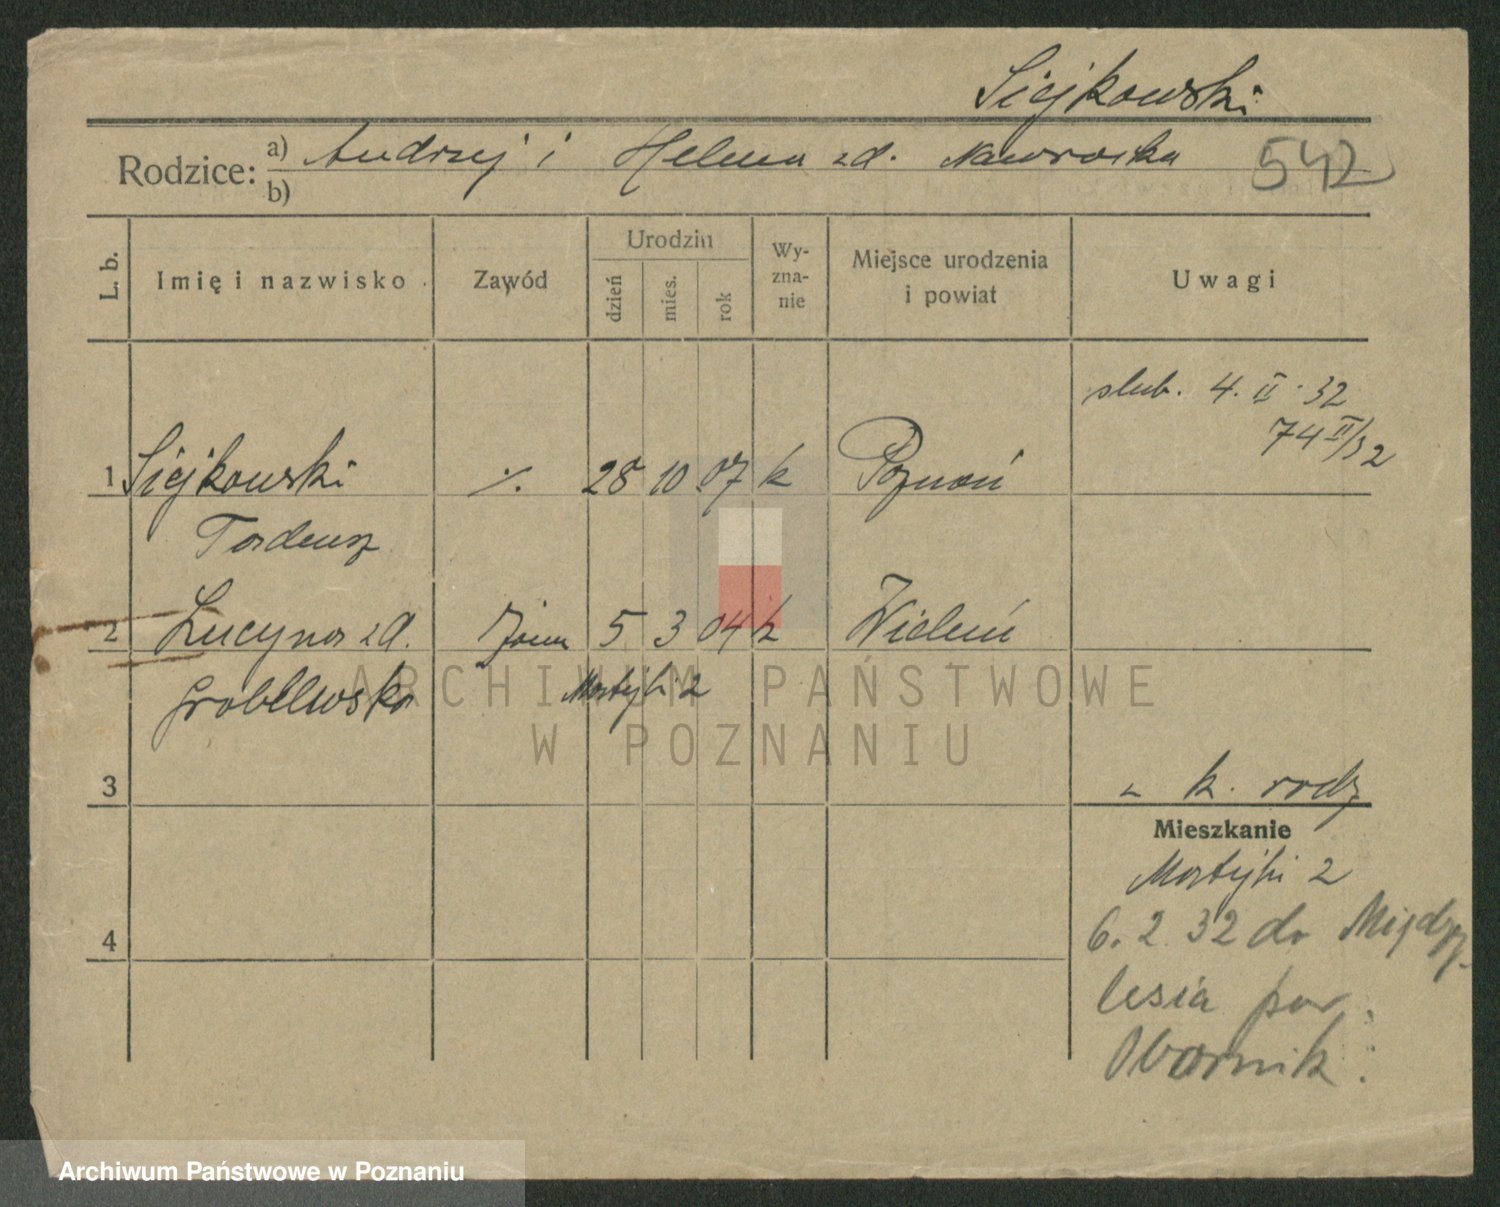 Siejkowski
Rodzice: a) Andrzej i Helena zd. Nawrocka
b)
542
L. b.
Imię i nazwisko
Zawód
Urodzin
dzień
mies.
rok
Wy-
zna-
nie
Miejsce urodzenia
i powiat
Uwagi
slub. 4. II. 32
74 II/32
1 Siejkowski
Tadeusz
%. 28 10 07 k Poznań
2 Lucyna zd.
Grobelwska
5 3 04 k Wieleń
Mostyki 2
3
k. rodz
Mieszkanie
Mostyki 2
4
6. 2. 32 do Między-
lesia pow.
Obornik.
ARCHIWUM PAŃSTWOWE
W POZNANIU
Archiwum Państwowe w Poznaniu